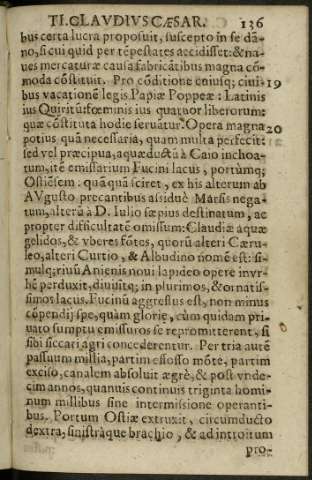 TI. CLAVDIVS CÆSAR. 136
bus certa lucra proposuit, suscepto in se dã-
no, si cui quid per tẽpestates accidisset: & na-
ues mercaturæ causa fabricãtibus magna cõ-
moda cõstituit. Pro cõditione cuiusq; ciui- 19
bus vacationẽ legis Papiæ Poppeæ: Latinis
ius Quiritũ: fœminis ius quatuor liberorum:
quæ cõstituta hodie seruãtur. Opera magna 20
potius quã necessaria, quam multa perfecit:
sed vel præcipua, aquæductũ à Caio inchoa-
tum, itẽ emissarium Fucini lacus, portumq;
Ostiẽsem: quãquã sciret, ex his alterum ab
AVgusto precantibus assiduè Marsis nega-
tum, alterũ à D. Iulio sæpius destinatum, ac
propter difficultatẽ omissum: Claudiæ aquæ
gelidos, & vberes fõtes, quorũ alteri Cæru-
leo, alteri Curtio, & Albudino nomẽ est: si-
mulq; riuũ Anienis noui lapideo opere in vr-
bẽ perduxit, diuisitq; in plurimos, & ornatis-
simos lacus. Fucinũ aggressus est, non minus
cõpendij spe, quàm gloriæ, cùm quidam pri-
uato sumptu emissuros se repromitterent, si
sibi siccati agri concederentur. Per tria autẽ
passuum millia, partim effosso mõte, partim
exciso, canalem absoluit ægrè, & post vnde-
cim annos, quanuis continuis triginta homi-
num millibus sine intermissione operanti-
bus. Portum Ostiæ extruxit, circumducto
dextra, sinistráque brachio, & ad introitum
pro-